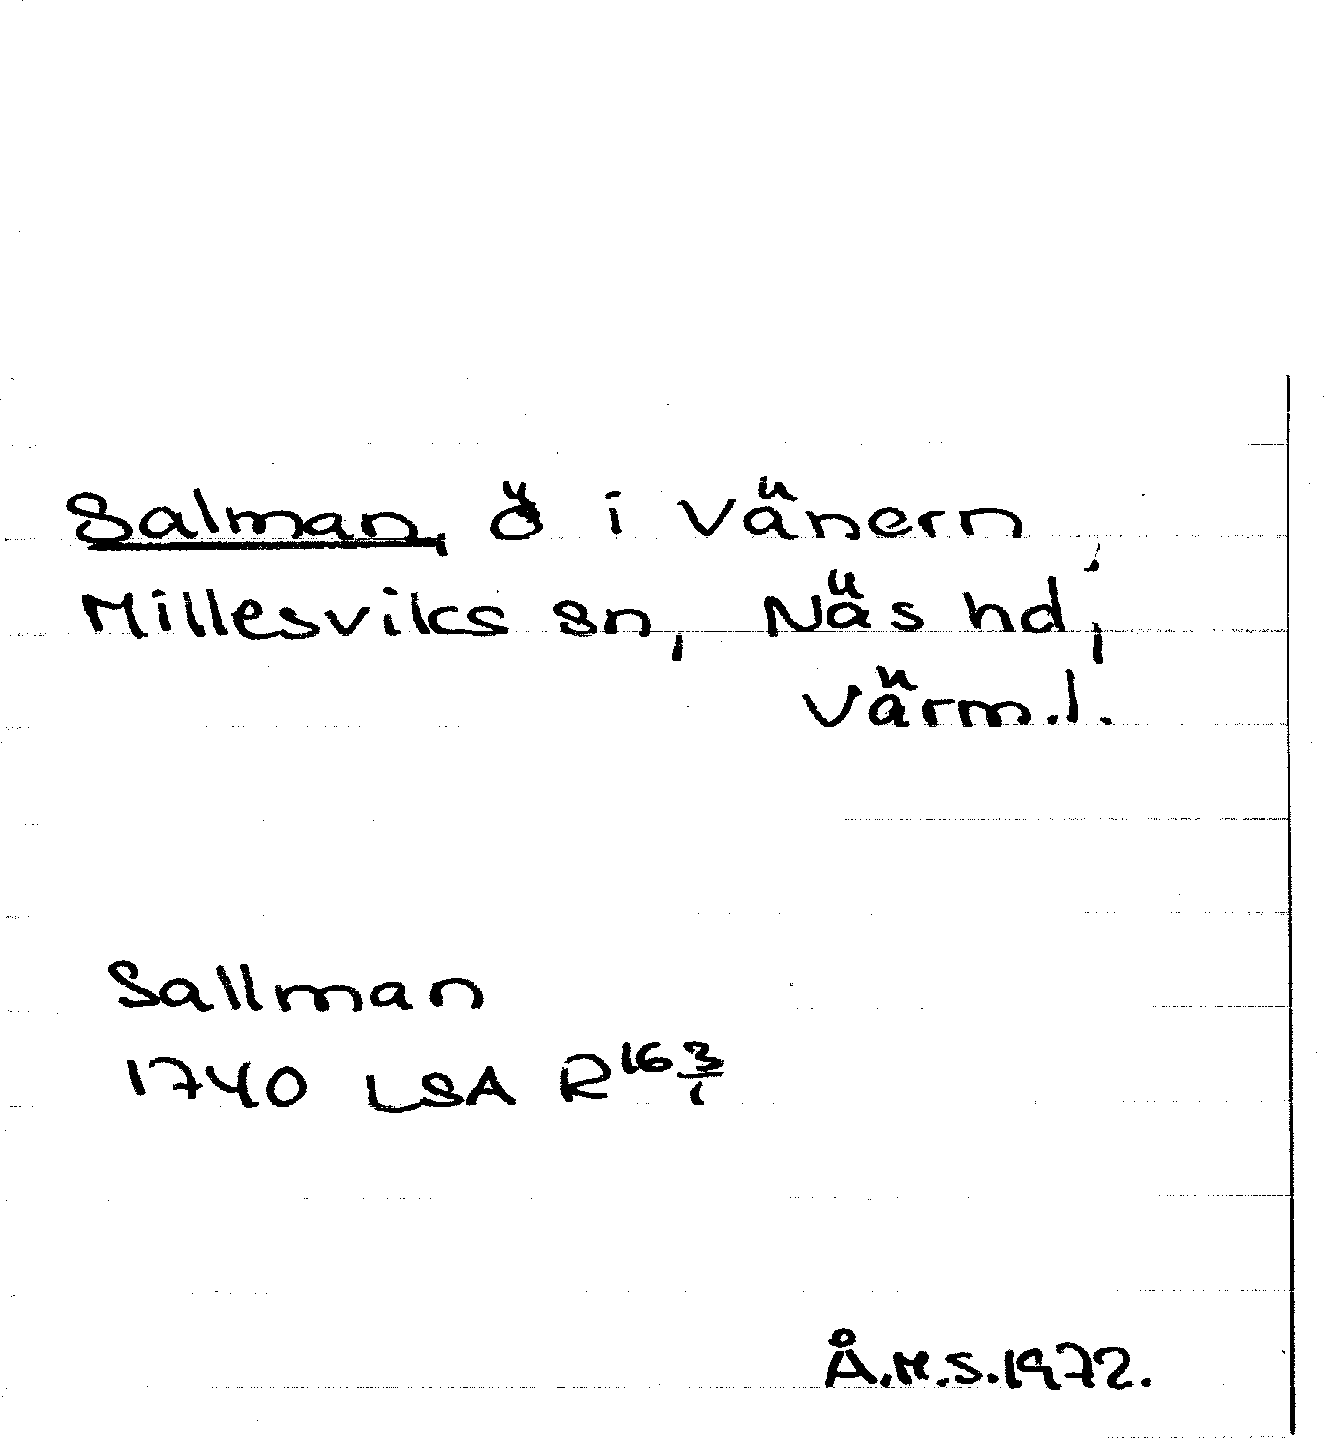 Salman, ö i Vänern,
Millesviks sn, Näs hd,
Värml.
Sallman
1740 LSA R16 3/1
Å.M.S.1972.